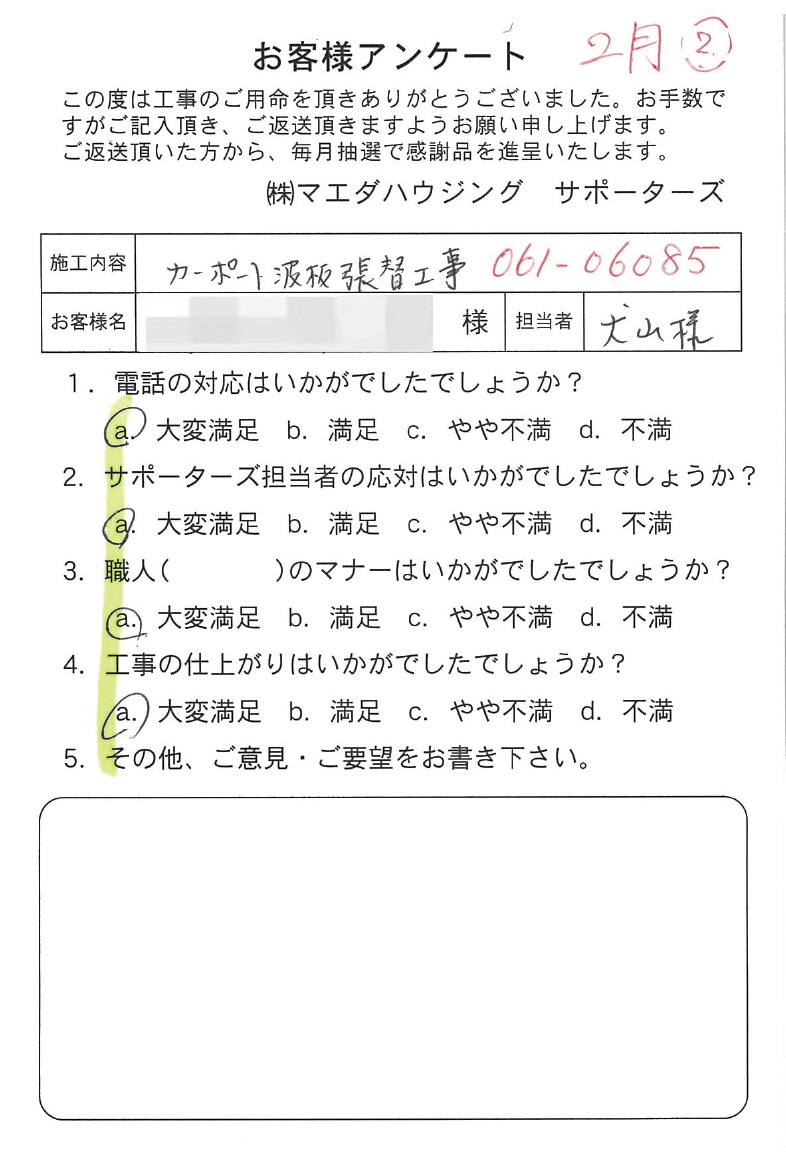 お客様アンケート 2月 ②
この度は工事のご用命を頂きありがとうございました。お手数で
すがご記入頂き、ご返送頂きますようお願い申し上げます。
ご返送頂いた方から、毎月抽選で感謝品を進呈いたします。
㈱マエダハウジング　サポーターズ
施工内容 カーポート波板張替工事 061-06085
お客様名 様 担当者 犬山様
1. 電話の対応はいかがでしたでしょうか？
a. 大変満足 b. 満足 c. やや不満 d. 不満
2. サポーターズ担当者の応対はいかがでしたでしょうか？
a. 大変満足 b. 満足 c. やや不満 d. 不満
3. 職人(　　　　)のマナーはいかがでしたでしょうか？
a. 大変満足 b. 満足 c. やや不満 d. 不満
4. 工事の仕上がりはいかがでしたでしょうか？
a. 大変満足 b. 満足 c. やや不満 d. 不満
5. その他、ご意見・ご要望をお書き下さい。